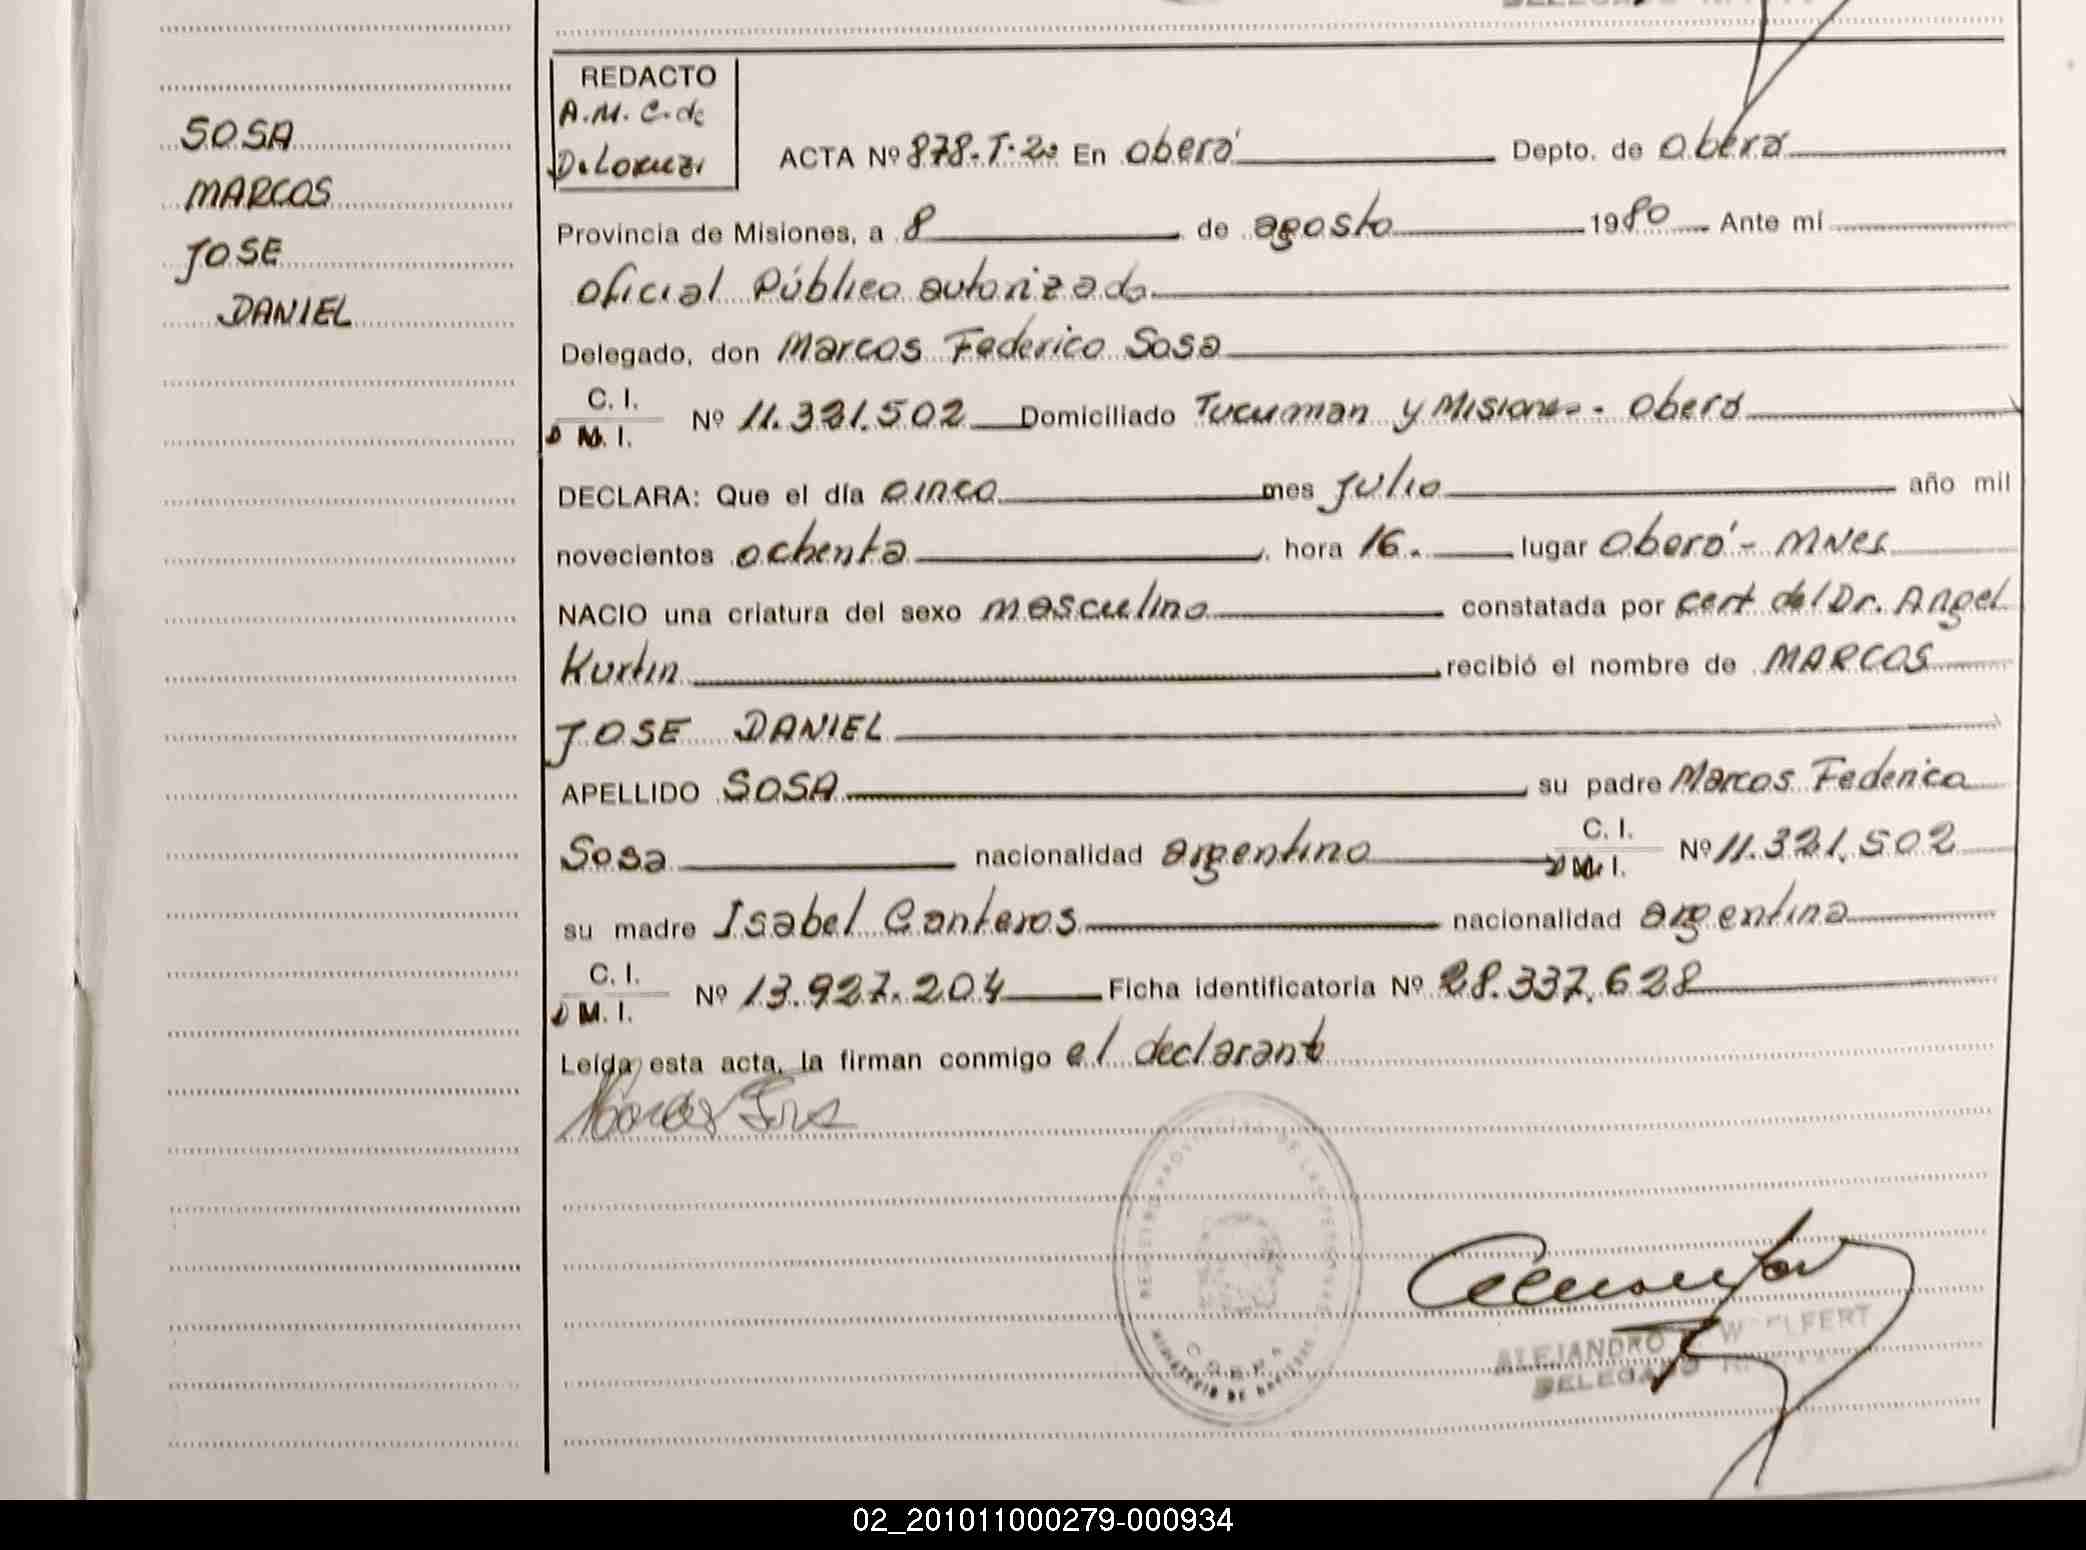 SOSA
MARCOS
JOSE
DANIEL
REDACTO
A.M. C. de
ACTA Nº 878-T-2º En Oberá Depto. de Oberá
Provincia de Misiones, a 8 de agosto 1980 Ante mí
Oficial Público autorizado
Delegado, don Marcos Federico Sosa
C. I.
D M. I. Nº 11.321.502 Domiciliado Tucuman y Misiones - Oberá
DECLARA: Que el día cinco mes Julio año mil
novecientos ochenta hora 16. lugar Oberá - Mnes
NACIO una criatura del sexo masculino constatada por cert del Dr. Angel
Kurtin recibió el nombre de MARCOS
JOSE DANIEL
APELLIDO SOSA su padre Marcos Federico
Sosa nacionalidad argentino C. I. D M. I. Nº 11.321.502
su madre Isabel Canteros nacionalidad argentina
C. I.
D M. I. Nº 13.927.204 Ficha identificatoria Nº 28.337.628
Leída esta acta, la firman conmigo el declarante
REGISTRO PROVINCIAL DE LAS PERSONAS
OBERA
MINISTERIO DE
ALEJANDRO
DELEGADO
02_201011000279-000934